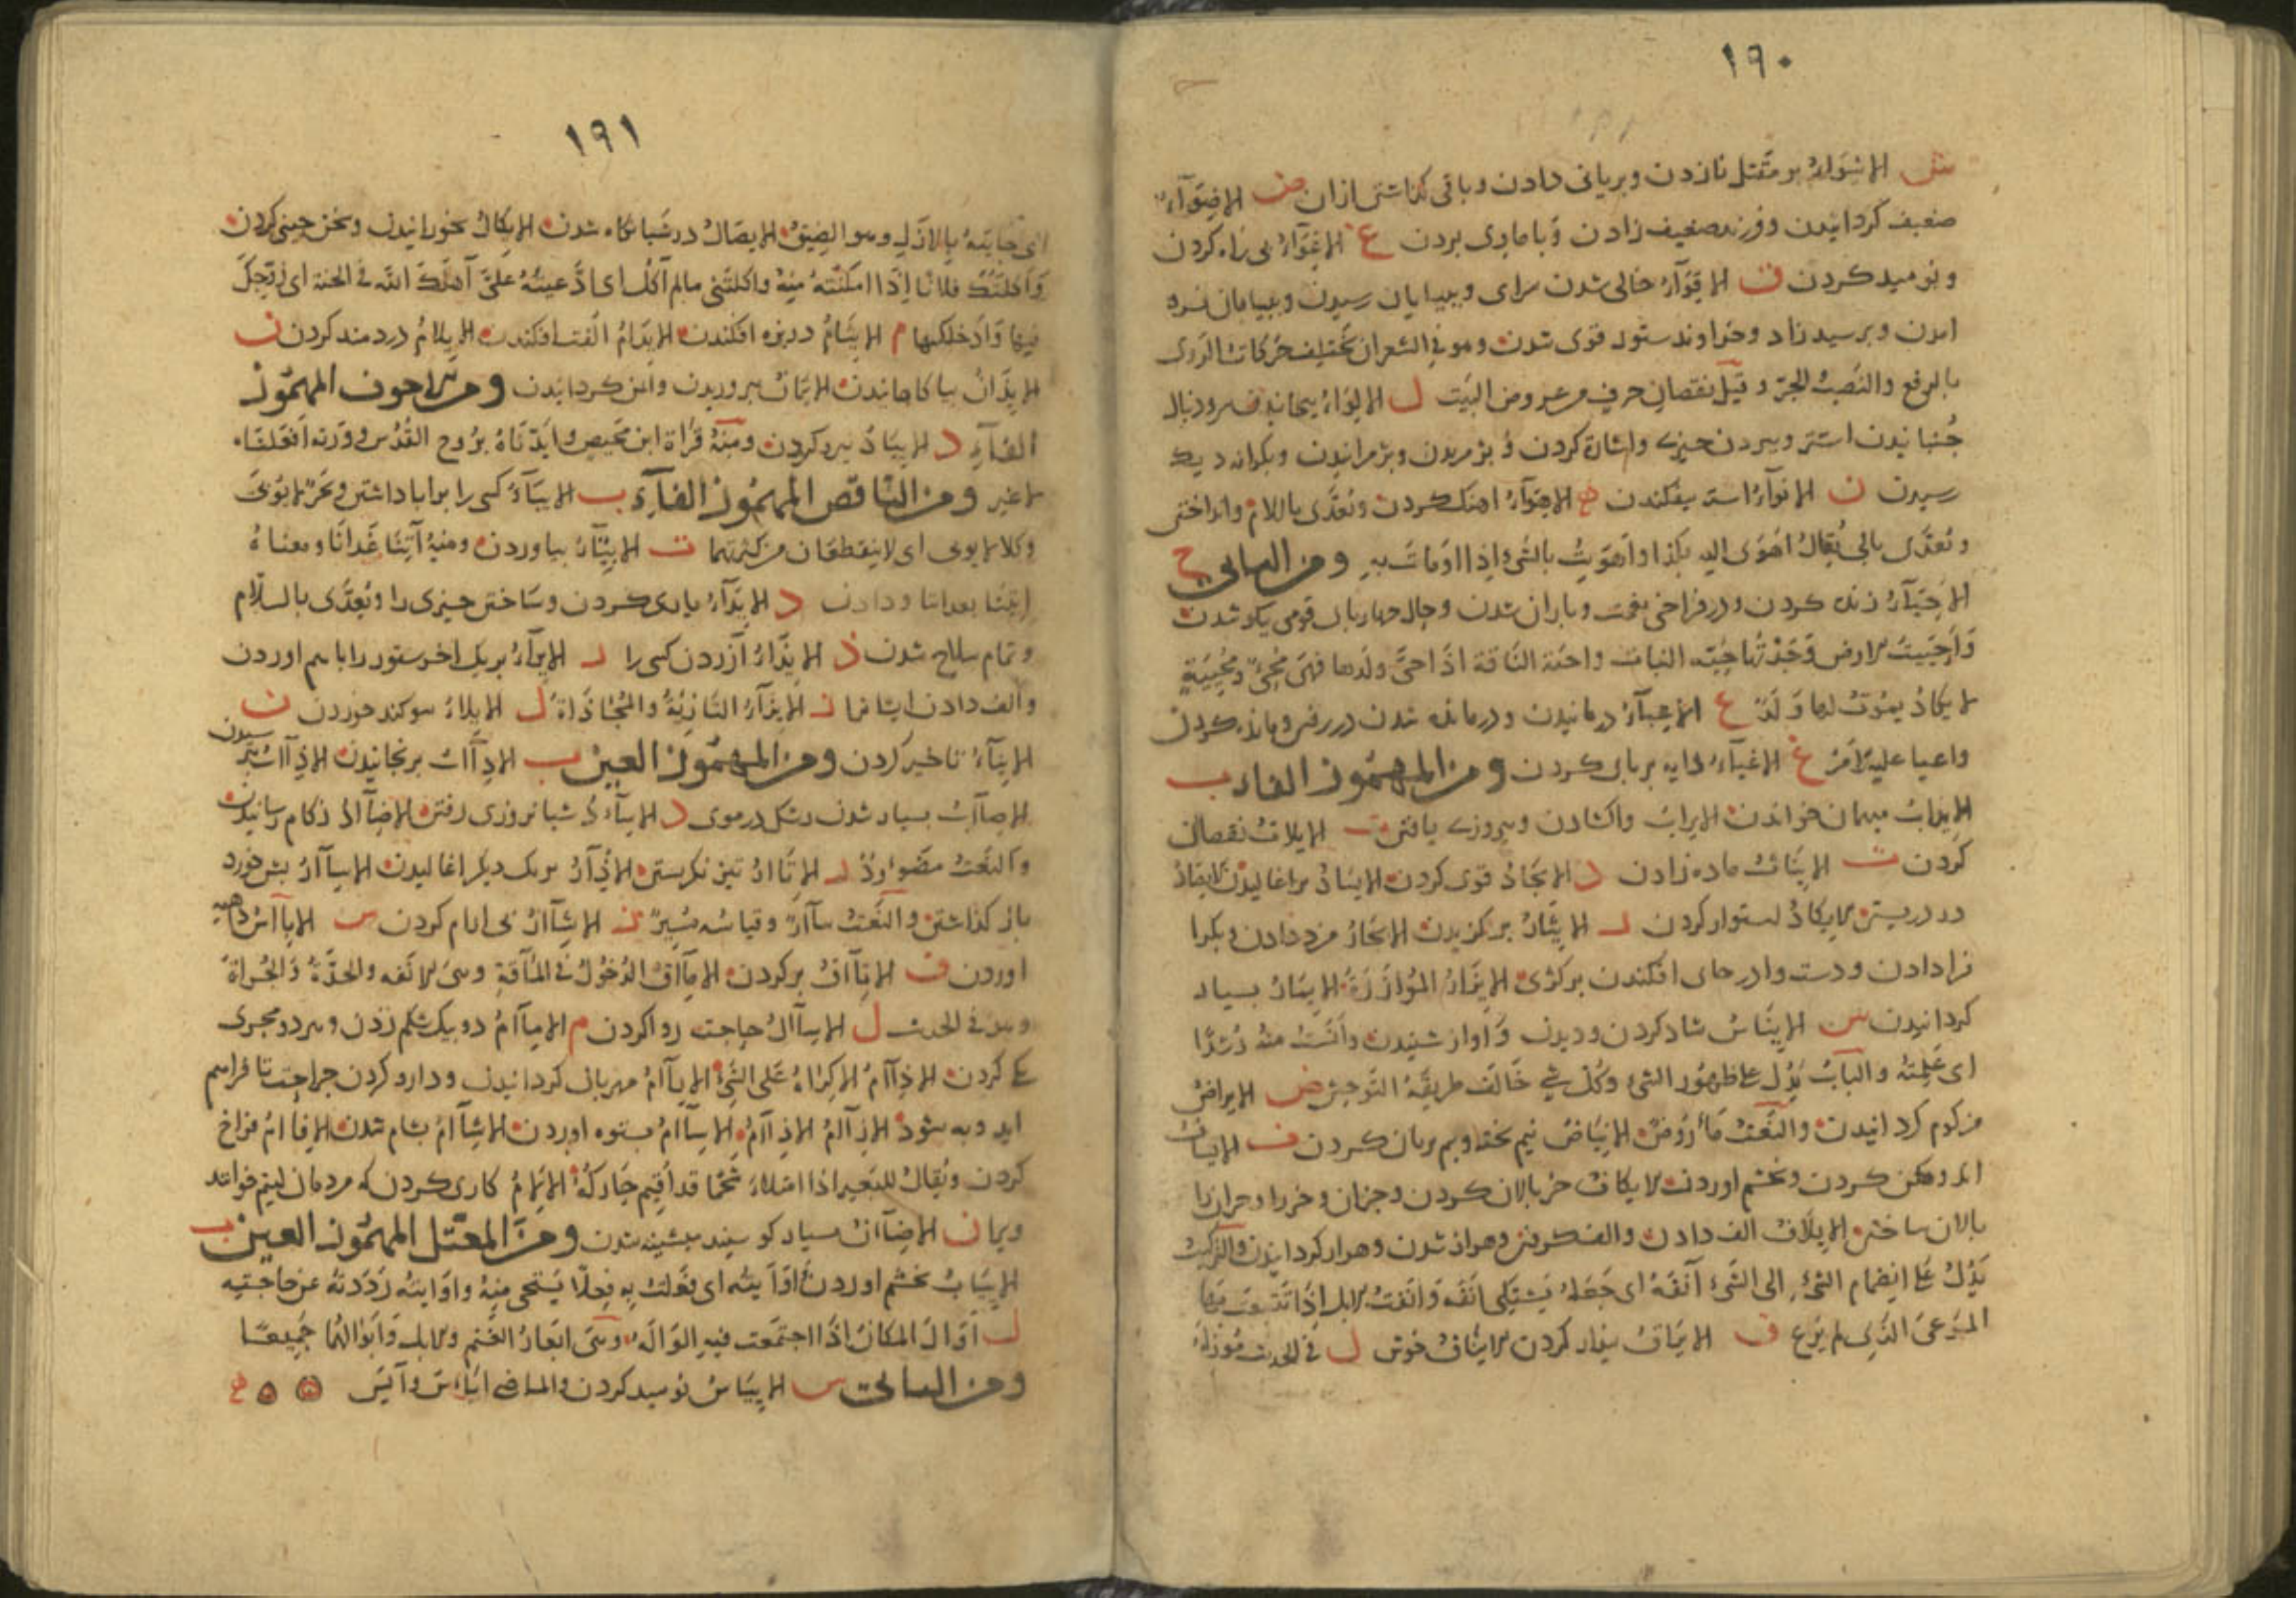 ١٩٠
ش الاشواء بر مقتل نازدن وبریانی دادن وباقی گذاشتن از ان ض الاضواء
ضعیف کردانیدن وفرزند ضعیف زادن وبا مادی بردن ع الاغواء بی راه کردن
ونومید کردن ق الاقواء خالی شدن سرای وببیابان رسیدن وببیابان فرو
امدن وبرسید زاد وخداوند ستور قوی شدن وهو فی الشعر ان تختلف حرکات الروی
بالرفع والنصب والجر وقیل نقصان حرف من عروض البیت ل الالواء
جنبانیدن استر وببردن چیزی واشارة کردن وپژمریدن وپژمرانیدن وبکرانه دیک
رسیدن ن الانواء استه بیفکندن ه الاهواء اهنک کردن وتعدی باللام وانداختن
وتعدی بالی یقال اهوی الیه بکذا واهویت بالشیء اذا اومات به ومن الیائی ح
الاحیاء زنده کردن ودر فراخی نعمت وباران شدن وحال چهارپای قومی نیکو شدن
واحییت الارض وجدتها حیة النبات واحیت الناقة اذا حیی ولدها فهی محیی ومحییة
لا یکاد یموت لها ولد ع الاعیاء درمانیدن ودرمانده شدن در رفتن ومانده کردن
واعیا علیه الامر غ الاغیاء رایه بر پای کردن ومن المهموز الفاء ب
الایداب میهمان خواندن الایراب واکشادن وپیروزی یافتن ت الایلات نقصان
کردن ث الایناث ماده زادن د الایجاد قوی کردن الایساد براغالیدن الایصاد
در دربستن الایکاد استوار کردن ر الایثار برکزیدن الایجار مزد دادن وبکرا
فرا دادن ودست وا در جای افکندن بر کژی الایزار الموازرة الایسار بسیار
کردانیدن س الایناس شاد کردن ودیدن واواز شنیدن وانست منه رشدا
ای علمته والباب یدل علی ظهور الشیء وکل شیء خالف طریقة التوحش ض الایراض
مزکوم کردانیدن والنعت مأروض الایناض نیم پخته ونیم بریان کردن ف الایساف
اندوهکن کردن وبخشم اوردن الایکاف خر بالان کردن وجزان وخر را وجزان را
بالان ساختن الایلاف الف دادن والف کرفتن وهزار شدن وهزار کردانیدن والترکیب
یدل علی انضمام الشیء الی الشیء آنفه ای جعله یشتکی انفه وآنفت الابل اذا تتبعت بها
المرعی الذی لم یرع ق الایباق بیزار کردن الایناق خوش ل فی الحدیث
١٩١
ای حابته بالازل وهو الضیق الایصال در شبانکاه شدن الایکال بخورانیدن وسخن چینی کردن
وآکلتک فلانا اذا امکنته منه وآکلتنی مالم آکل ای ادعیته علی آهلک الله فی الجنة ای زوجک
فیها وادخلکها م الایتام در بیوه افکندن الایدام الفت افکندن الایلام دردمند کردن ن
الایذان بیاکاهانیدن الایمان بیروریدن وایمن کردانیدن ومن الاجوف المهموز
الفاء د الایاد نیرو کردن ومنه قراة ابن محیصن وآیدناه بروح القدس ووزنه افعلناه
لا غیر ومن الناقص المهموز الفاء ب الایباء کسی را بر ابا داشتن وبحر لا یؤبی
وکلا لا یوبی ای لا ینقطعان من کثرتهما ت الایتاء بیاوردن ومنه آتنا غدانا ومعناه
ایتنا بغدائنا ودادن د الایداء یاری کردن وساختن چیزی را وتعدی باللام
وتمام سلاح شدن ذ الایذاء آزردن کسی را ر الایراء بر یک اخر ستور را باهم اوردن
والف دادن ایشانرا ز الایزاء التازیة والمحاذاة ل الایلاء سوکند خوردن ن
الایناء تاخیر کردن ومن المهموز العین ب الادآب برنجانیدن الاذآب بترسیدن
الاصآب بسیار شدن رشک در موی د الاسآد شبانروزی رفتن الاضآد زکام رسانیدن
والنعت مضؤود ر الاتآر تیز نکریستن الاذآر بر یک دیکر اغالیدن الاسآر پس خورد
باز گذاشتن والنعت سآر وقیاسه مسیر ز الاشآز بی ارام کردن س الابآس داهیه
اوردن ق الاتآق پر کردن الامآق الدخول فی المأقة وهی الانفه والحدة والجراة
ومنه فی الحدیث ل الاسآل حاجت روا کردن م الاتآم دو بیک شکم زدن وهر دو مجری
یکی کردن الاذآم الاکراه علی الشیء الارآم مهربان کردانیدن ودارو کردن جراحت تا فراهم
اید وبه شود الازآم الاذآم الاسآم بستوه اوردن الاشآم بشام شدن الافآم فراخ
کردن ویقال للبعیر اذا امتلاء شحما قد افئم حارکه الالآم کاری کردن که مردمان لئیم خوانند
ویرا ن الاضآن بسیار کوسپند میشینه شدن ومن المعتل المهموز العین ب
الایئاب بخشم اوردن اوأبته ای فعلت به فعلا یستحی منه واوأبته رددته عن حاجتیه
ل اوأل المکان اذا اجتمعت فیه الوالة وهی ابعار الغنم والابل وابوالها جمیعا
ومن الیائی س الایئاس نومید کردن والماضی ایأس وآیس